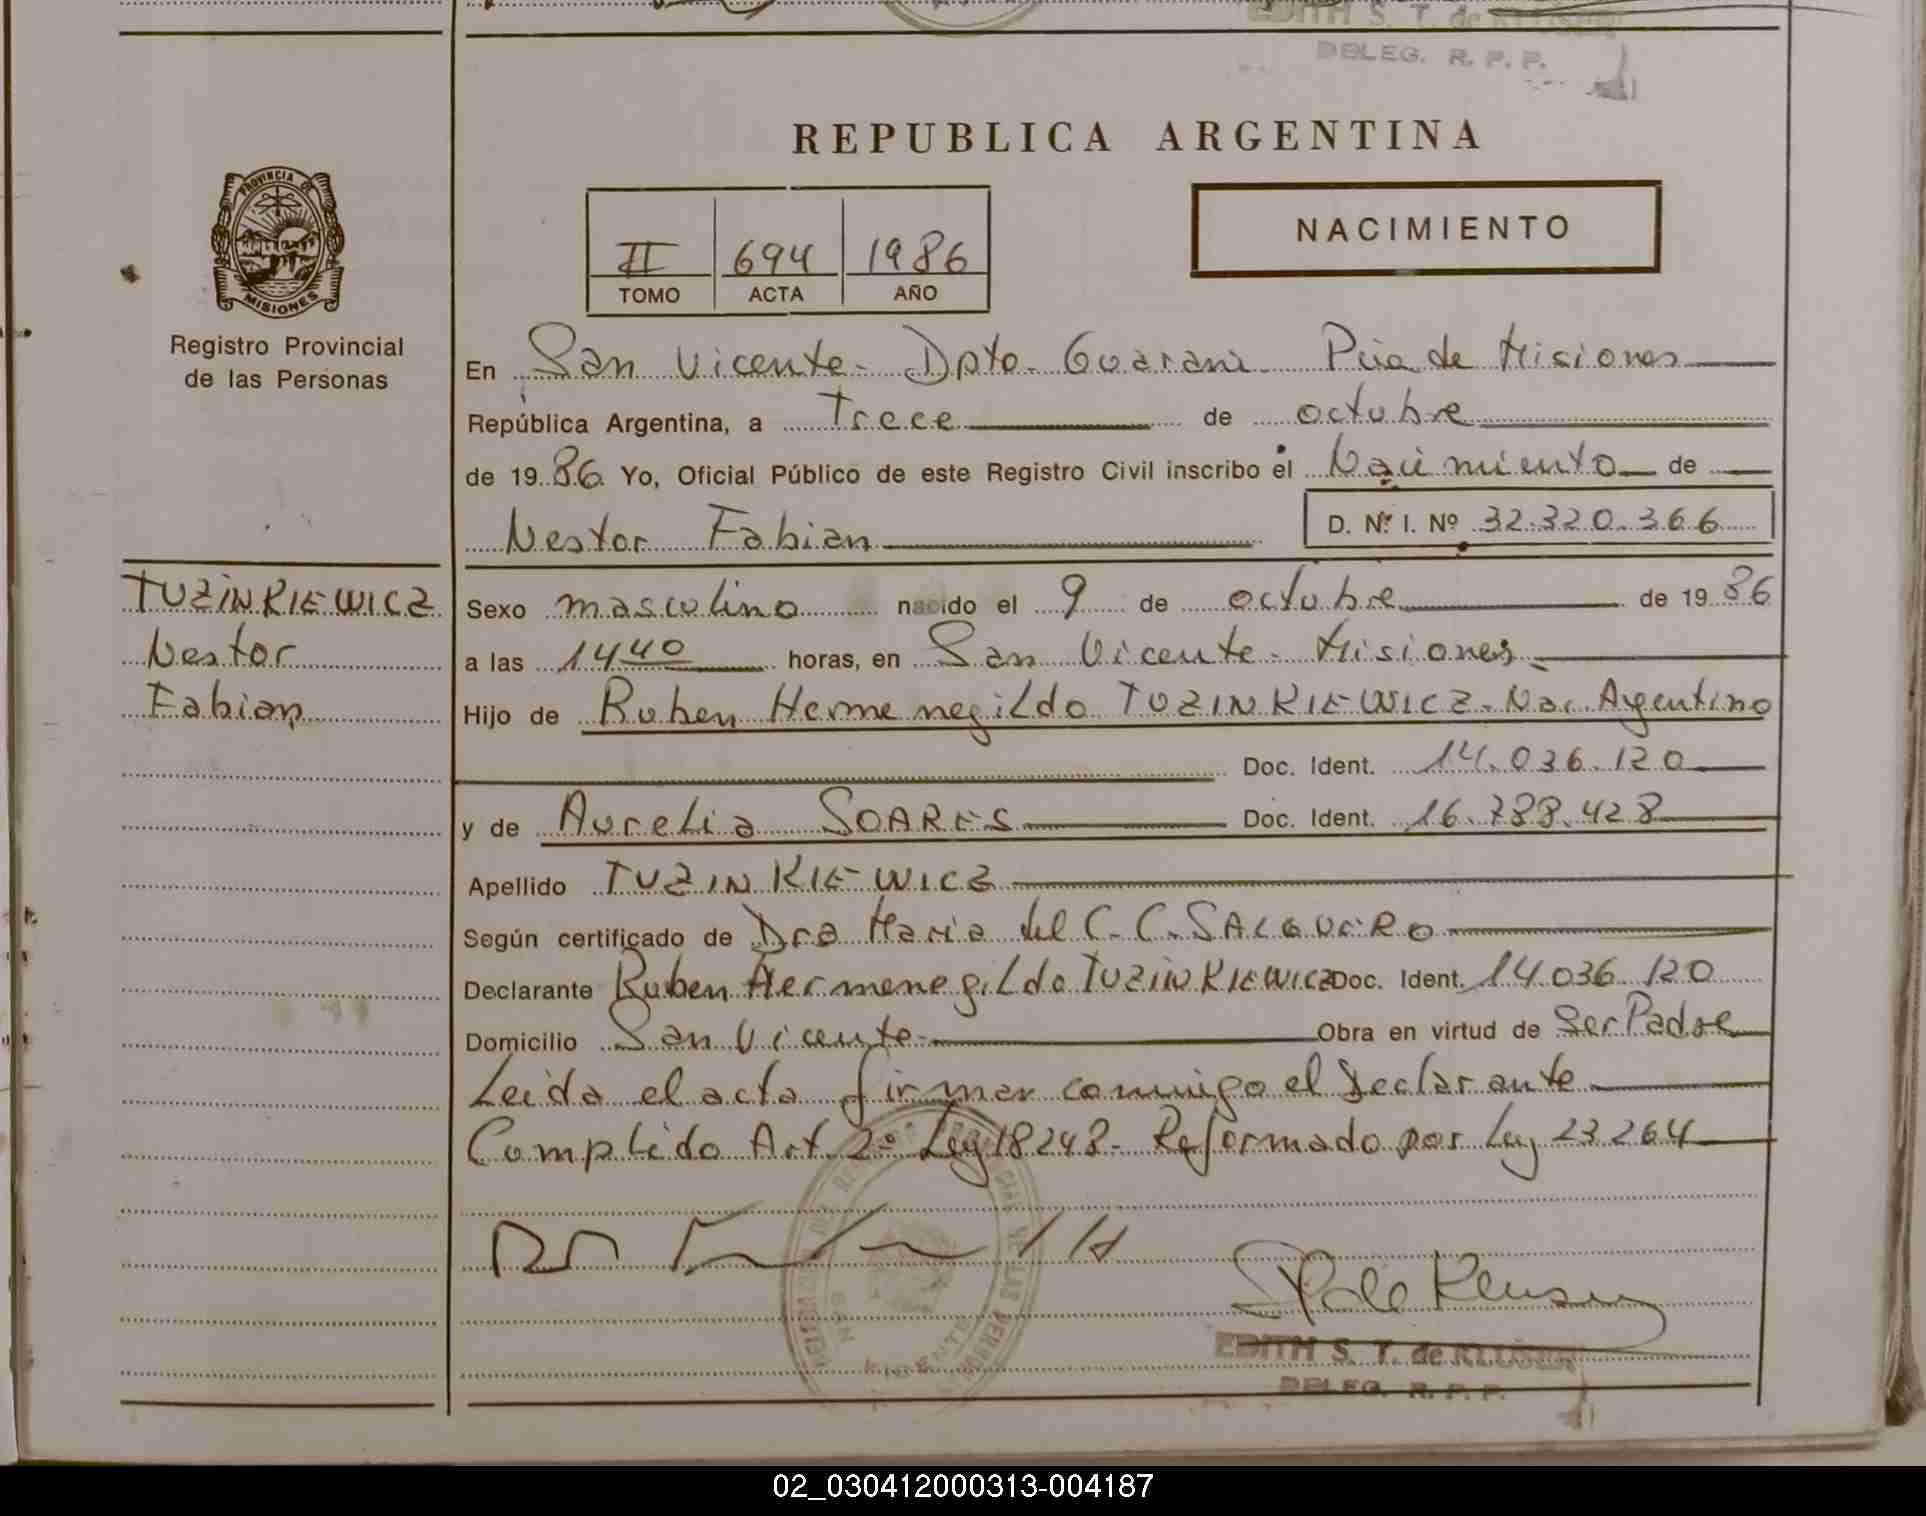 EDITH S. T. de KLUSER
DELEG. R. P. P.
REPUBLICA ARGENTINA
PROVINCIA DE
MISIONES
Registro Provincial
de las Personas
II 694 1986
TOMO ACTA AÑO
NACIMIENTO
En San Vicente - Dpto. Guarani Pcia de Misiones
República Argentina, a Trece de octubre
de 1986 Yo, Oficial Público de este Registro Civil inscribo el Nacimiento de
Nestor Fabian D. N. I. Nº 32.320.366
TUZINKIEWICZ
Nestor
Fabian
Sexo masculino nacido el 9 de octubre de 1986
a las 1440 horas, en San Vicente - Misiones
Hijo de Ruben Hermenegildo TUZINKIEWICZ - Nac. Argentino
Doc. Ident. 14.036.120
y de Aurelia SOARES Doc. Ident. 16.788.428
Apellido TUZINKIEWICZ
Según certificado de Dra Maria del C. C. SALGUERO
Declarante Ruben Hermenegildo TUZINKIEWICZ Doc. Ident. 14.036.120
Domicilio San Vicente Obra en virtud de Ser Padre
Leida el acta firman conmigo el Declarante
Complido Art. 2º Ley 18248 - Reformado por Ley 23264
EDITH S. T. de KLUSER
DELEG. R. P. P.
02_030412000313-004187